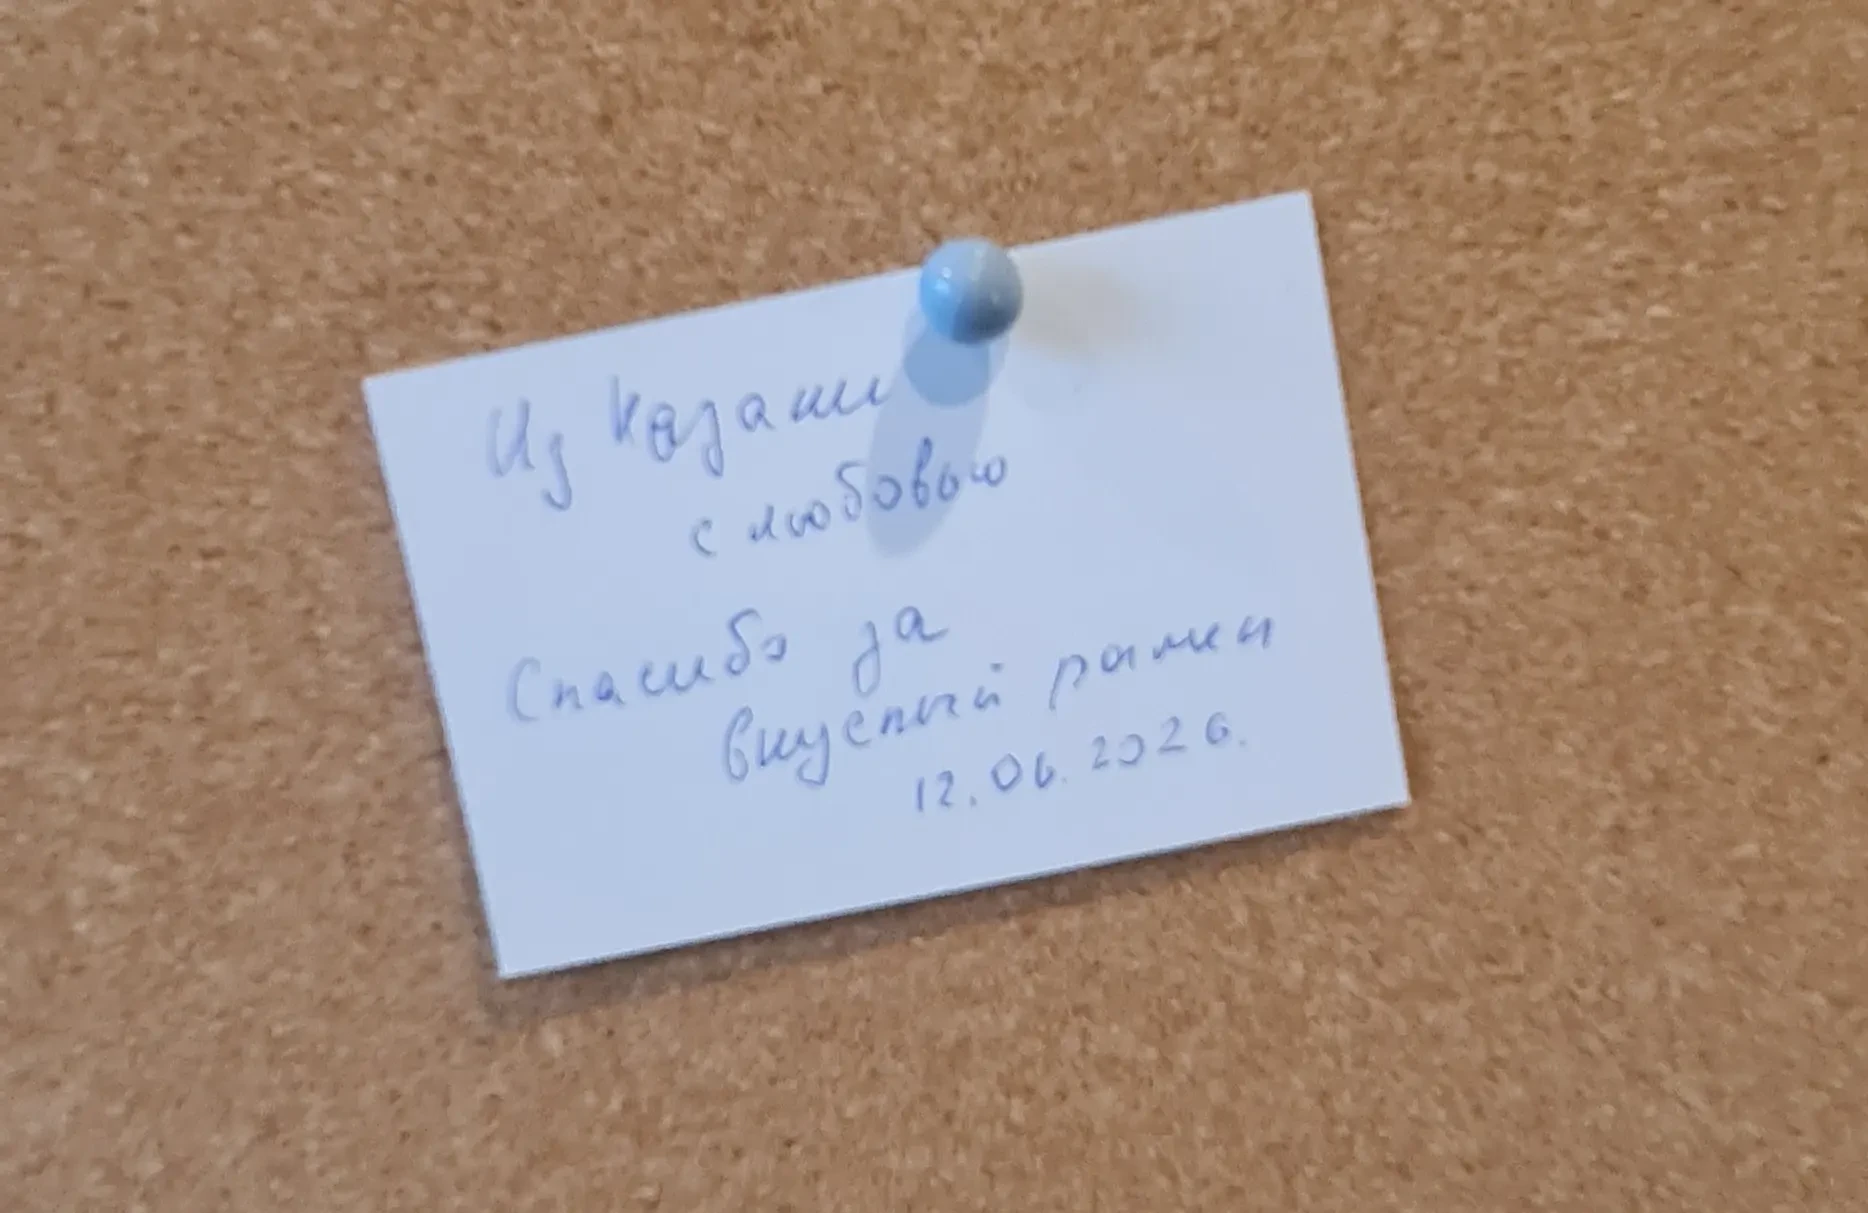 Из Казани
с любовью
Спасибо за
вкусный рамен
12.06.2026.